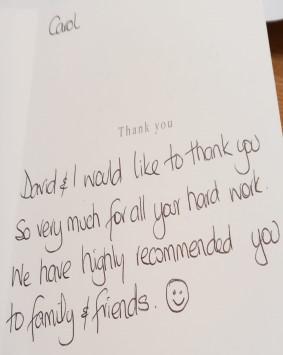 Carol
Thank you
David & I would like to thank you
so very much for all your hard work.
We have highly recommended you
to family & friends. ☺